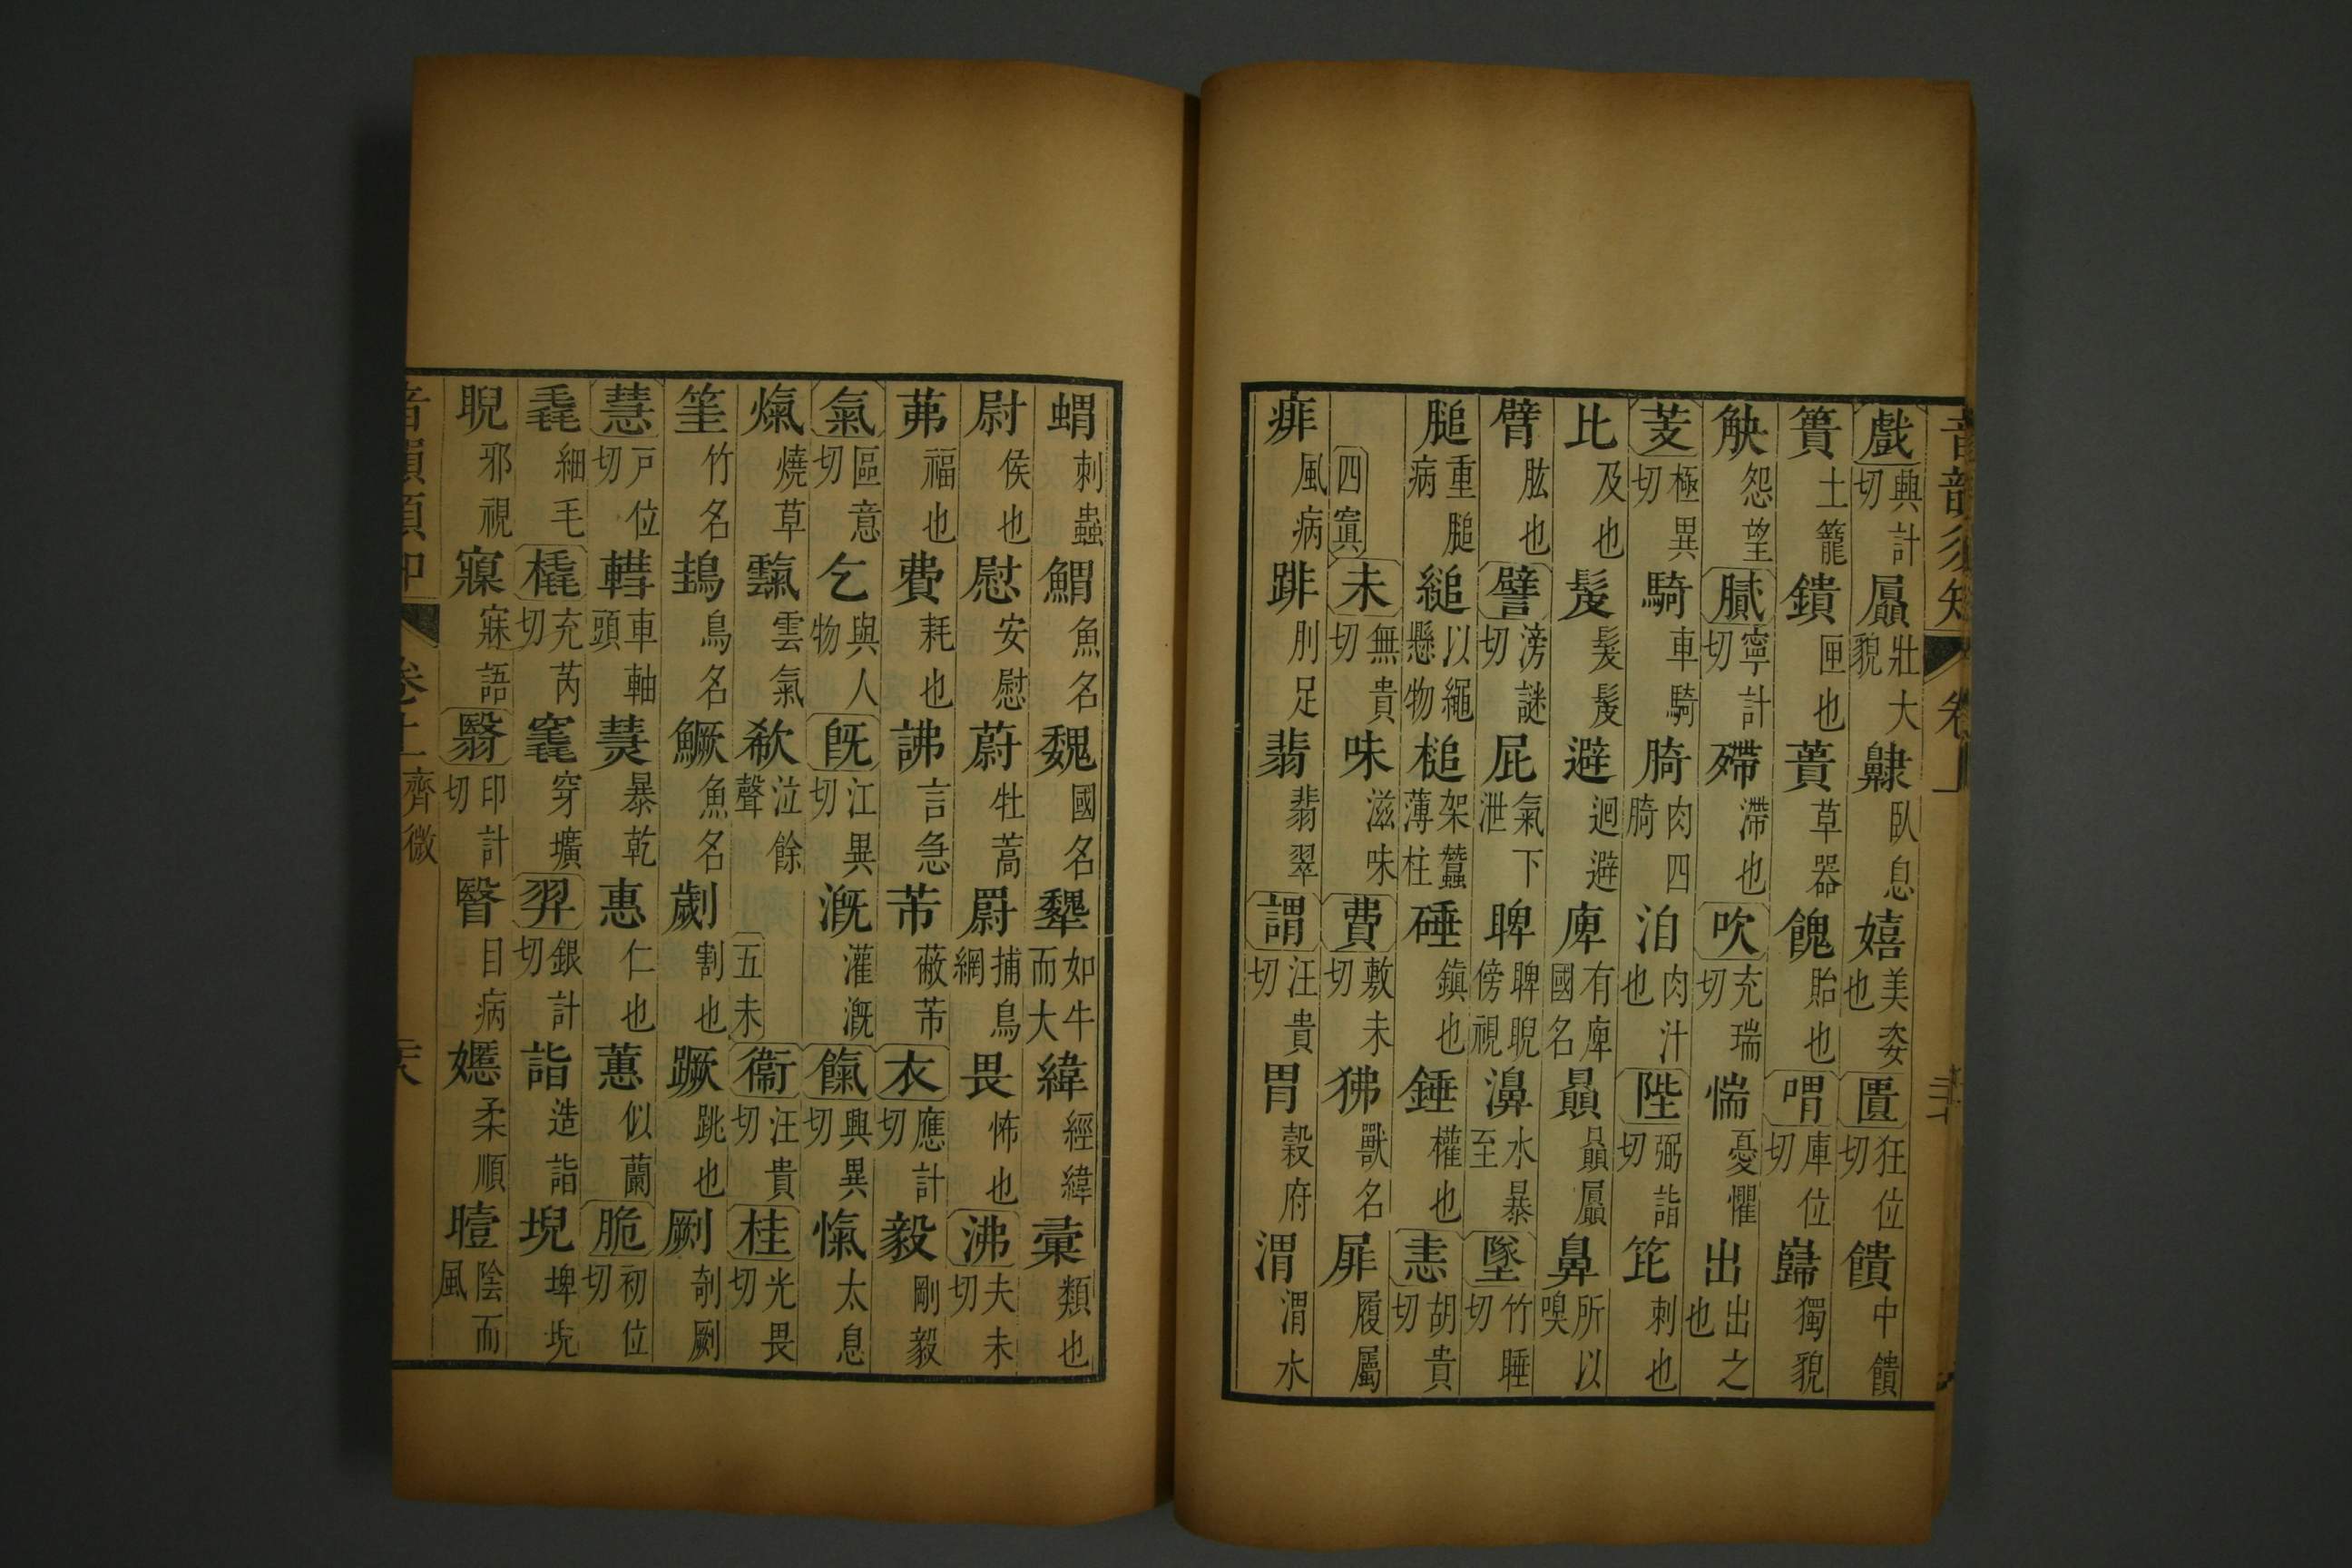 音韻須知 卷上
戲興計切屭壯大貌齂臥息嬉美姿也匱狂位切饋中饋
簣土籠鐀匣也蕢草器餽貽也喟庫位切巋獨貌
觖怨望膩寧計切殢滯也吹充瑞切惴憂懼出出之也
芰極異切騎車騎䏿肉四䏿洎肉汁也陛弼詣切笓刺也
比及也髲髮髲避迴避庳有庳國名贔贔屭鼻所以嗅
臂肱也譬滂謎切屁氣下泄睥睥睨傍視濞水暴至墜竹睡切
膇重膇病縋以繩懸物槌架蠶薄柱硾鎮也錘權也恚胡貴切
四寘未無貴切味滋味費敷未切狒獸名屝履屬
痱風病跸刖足翡翡翠謂汪貴切胃穀府渭渭水
蝟刺蟲鰃魚名魏國名犩如牛而大緯經緯彙類也
尉侯也慰安慰蔚牡蒿罻捕鳥網畏怖也沸夫未切
茀福也費耗也誹言急芾蔽芾衣應計切毅剛毅
氣區意切乞與人物旣江異切溉灌溉餼興異切愾太息
㷣燒草霼雲氣欷泣餘聲五未衞汪貴切桂光畏切
筀竹名鴂鳥名鱖魚名劌割也蹶跳也劂剞劂
慧戶位切轊車軸頭熭暴乾惠仁也蕙似蘭脆初位切
毳細毛橇充芮切竁穿壙羿銀計切詣造詣堄埤堄
睨邪視寱寐語翳印計切瞖目病嫕柔順曀陰而風
音韻須知 卷上 齊微